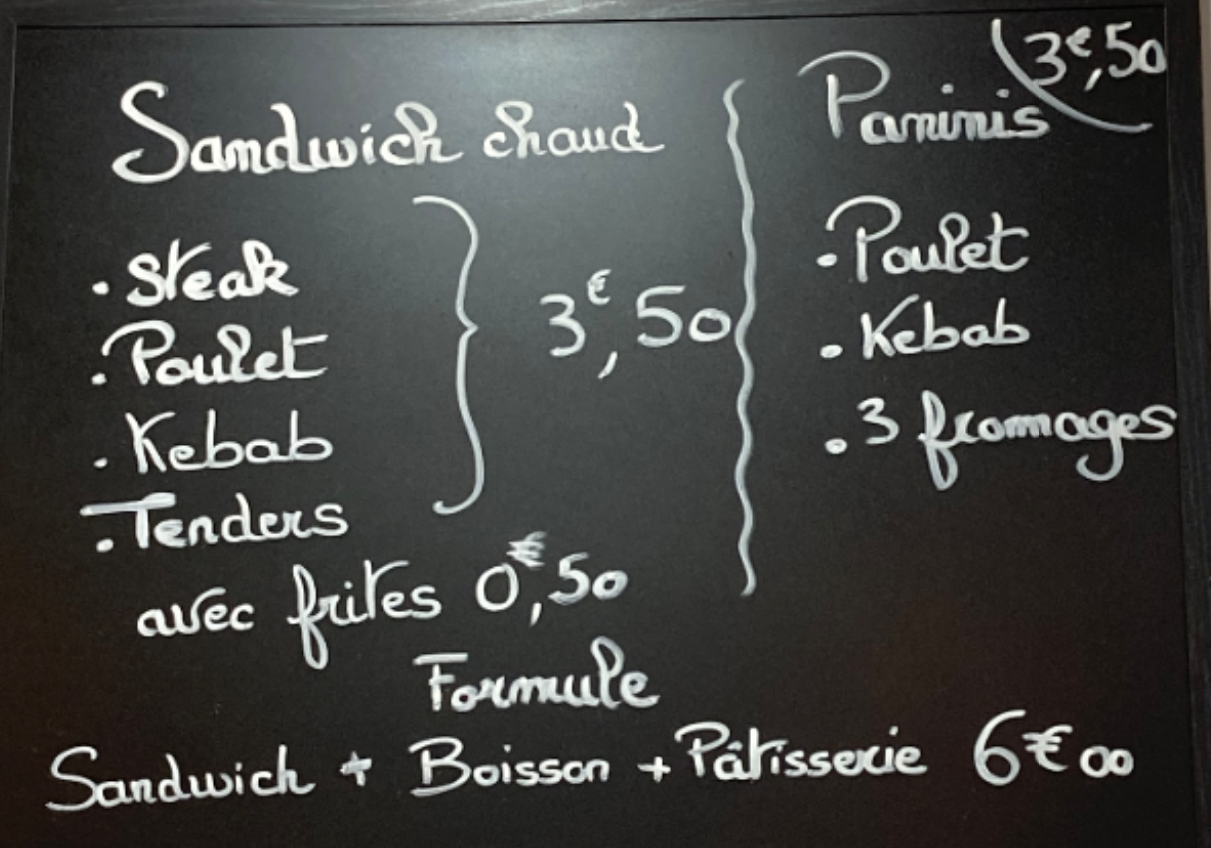 Sandwich chaud
. Steak
. Poulet
. Kebab
. Tenders
3€,50
avec frites 0€,50
Paninis 3€,50
. Poulet
. Kebab
. 3 fromages
Formule
Sandwich + Boisson + Pâtisserie 6€00